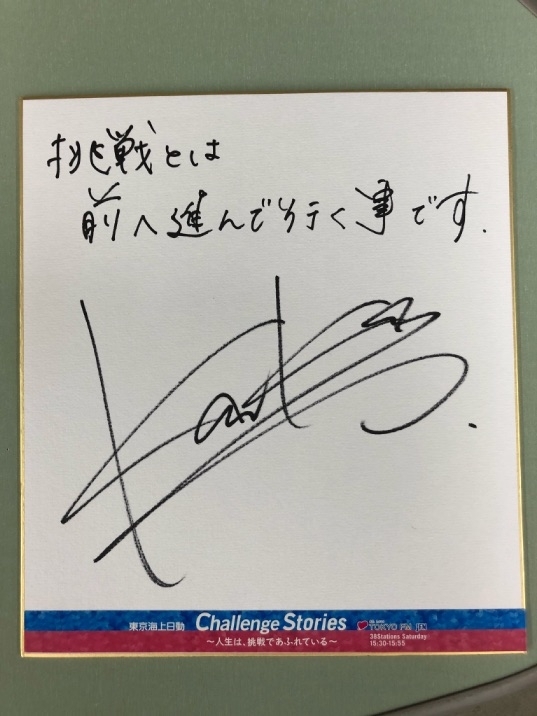 挑戦とは
前へ進んで行く事です.
東京海上日動 Challenge Stories
〜人生は、挑戦であふれている〜
TOKYO FM
38Stations Saturday
15:30-15:55